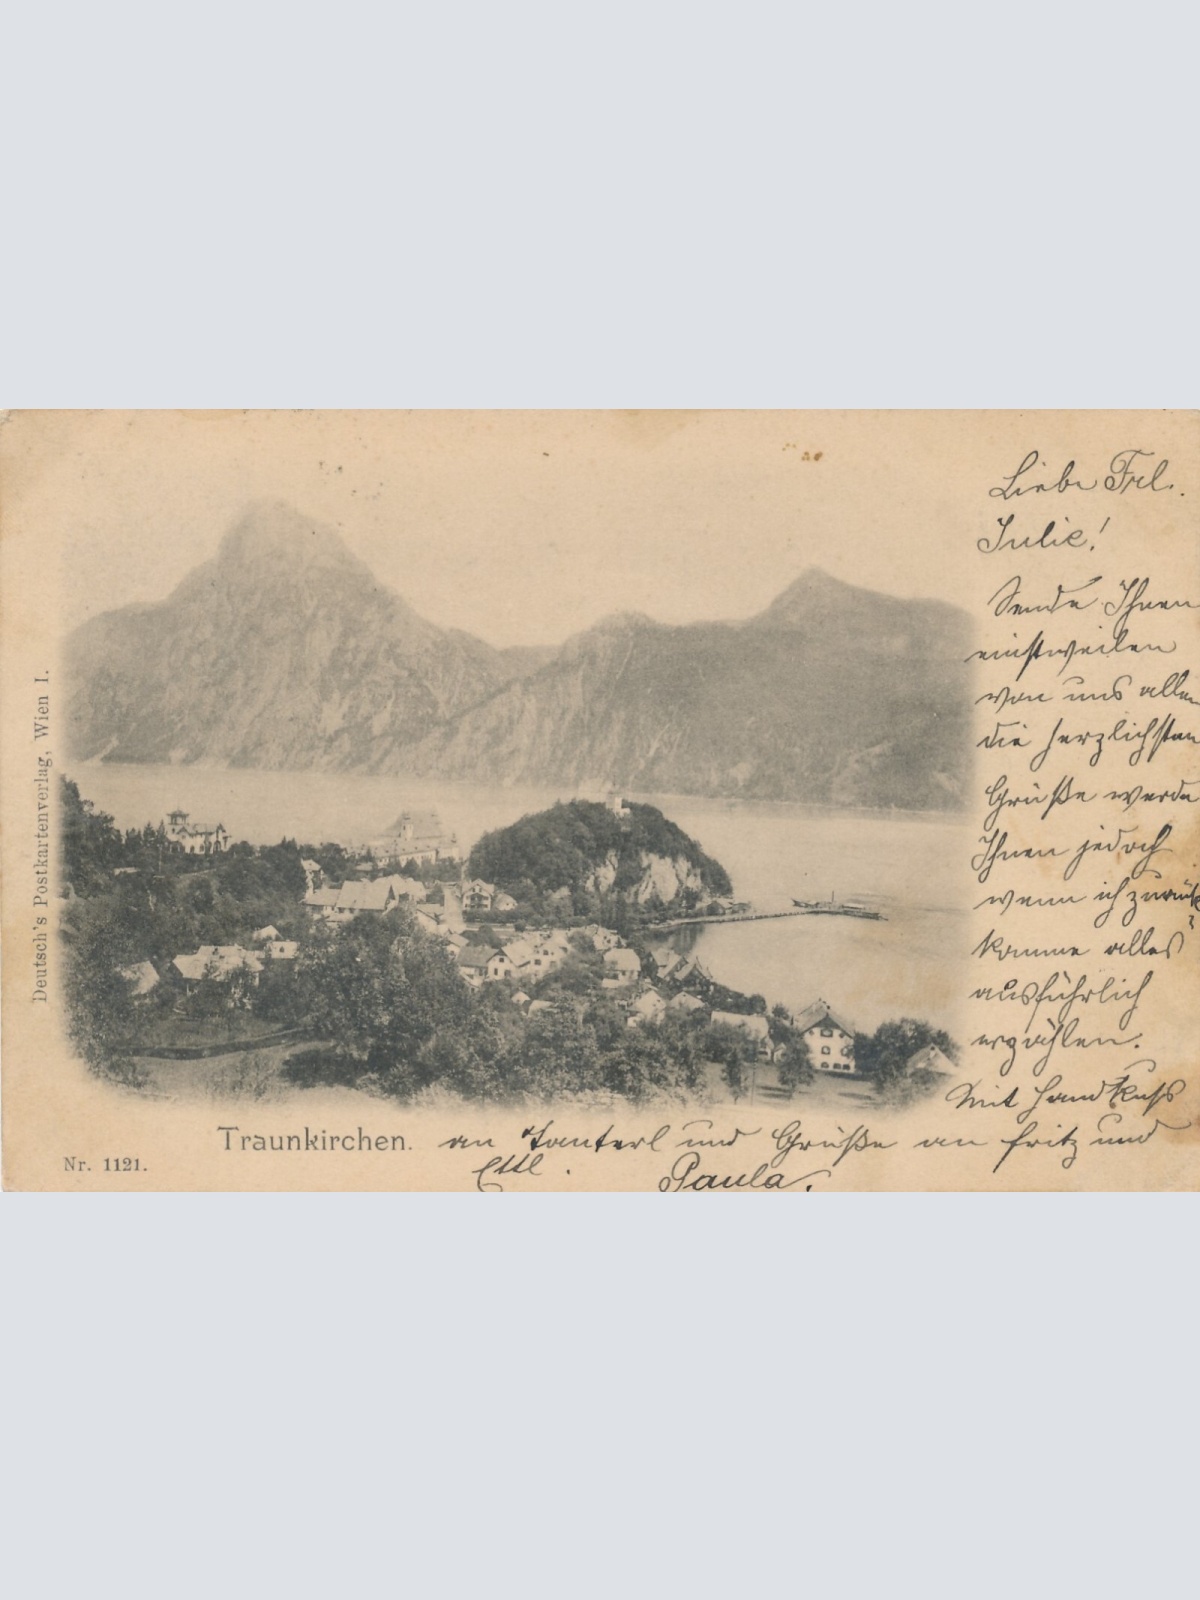 Liebe Frl.
Julie!
Sende Ihnen
einstweilen
von uns allen
die herzlichsten
Grüße werde
Ihnen jedoch
wenn ich zurück
komme alles
ausführlich
erzählen.
Mit Handkuss
an Tanterl und Grüße an Fritz und
Paula.
Traunkirchen.
Nr. 1121.
Deutsch's Postkartenverlag, Wien I.